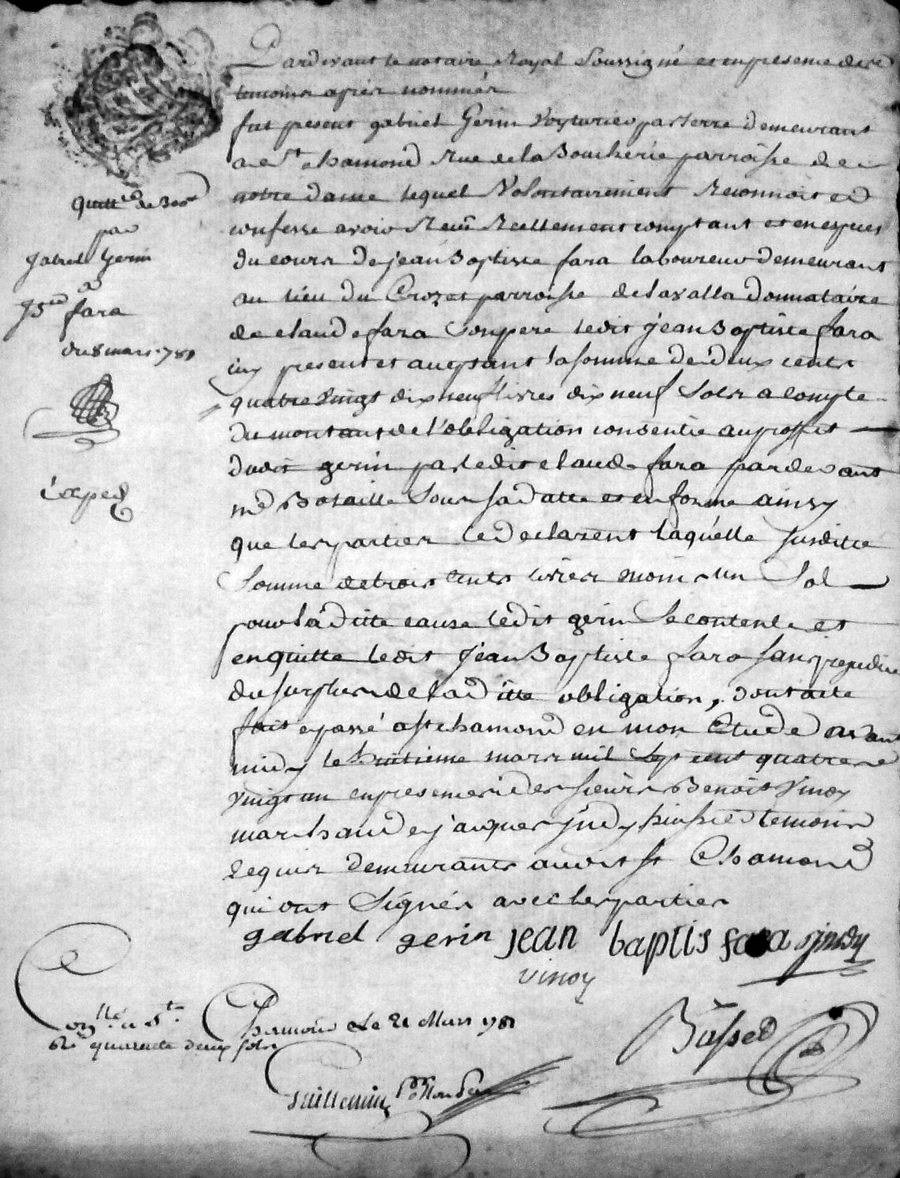 Pardevant le notaire Royal Soussigné et en presence des
temoins apres nommés
fut present gabriel Gerin Voyturier par terre demeurant
a St chamond Rue de la Boucherie parroisse de
notre dame lequel Volontairement Reconnoit et
confesse avoir Receu Reellement comptant et en espèces
du cours de jean Baptiste fara laboureur demeurant
au lieu du Crozet parroisse de lavalla donnataire
de claude fara Son pere ledit jean Baptiste fara
icy present et aceptant la somme de deux cents
quatre Vingt dix neuf livres dix neuf Sols a compte
du montant de l'obligation consentie au proffit
dudit gerin par ledit claude fara pardevant
me Bataille Sous sa datte et en forme ainsy
que les parties le declarent laquelle susditte
Somme de trois cents livres moins un Sol
pour la ditte cause ledit gerin Se contente et
en quitte ledit jean Baptiste fara sans prejudice
du surplus de la ditte obligation, dont acte
fait et passé a st chamond en mon Etude avant
midy le huitieme mars mil Sept cent quatre
vingt un en presence des sieurs Benoit Vinoy
marchand et jacques jndy temoins
Requis demeurants audit st Chamond
qui ont Signés avec les parties
gabriel gerin jean baptis fara sjndy
vinoy
quittce de 300#
par
gabriel Gerin
a
JBte fara
du 8 mars 1781
Exped
Conllé a St Chamond Le 21 Mars 1781
Rs quarante deux sols
Guillemin